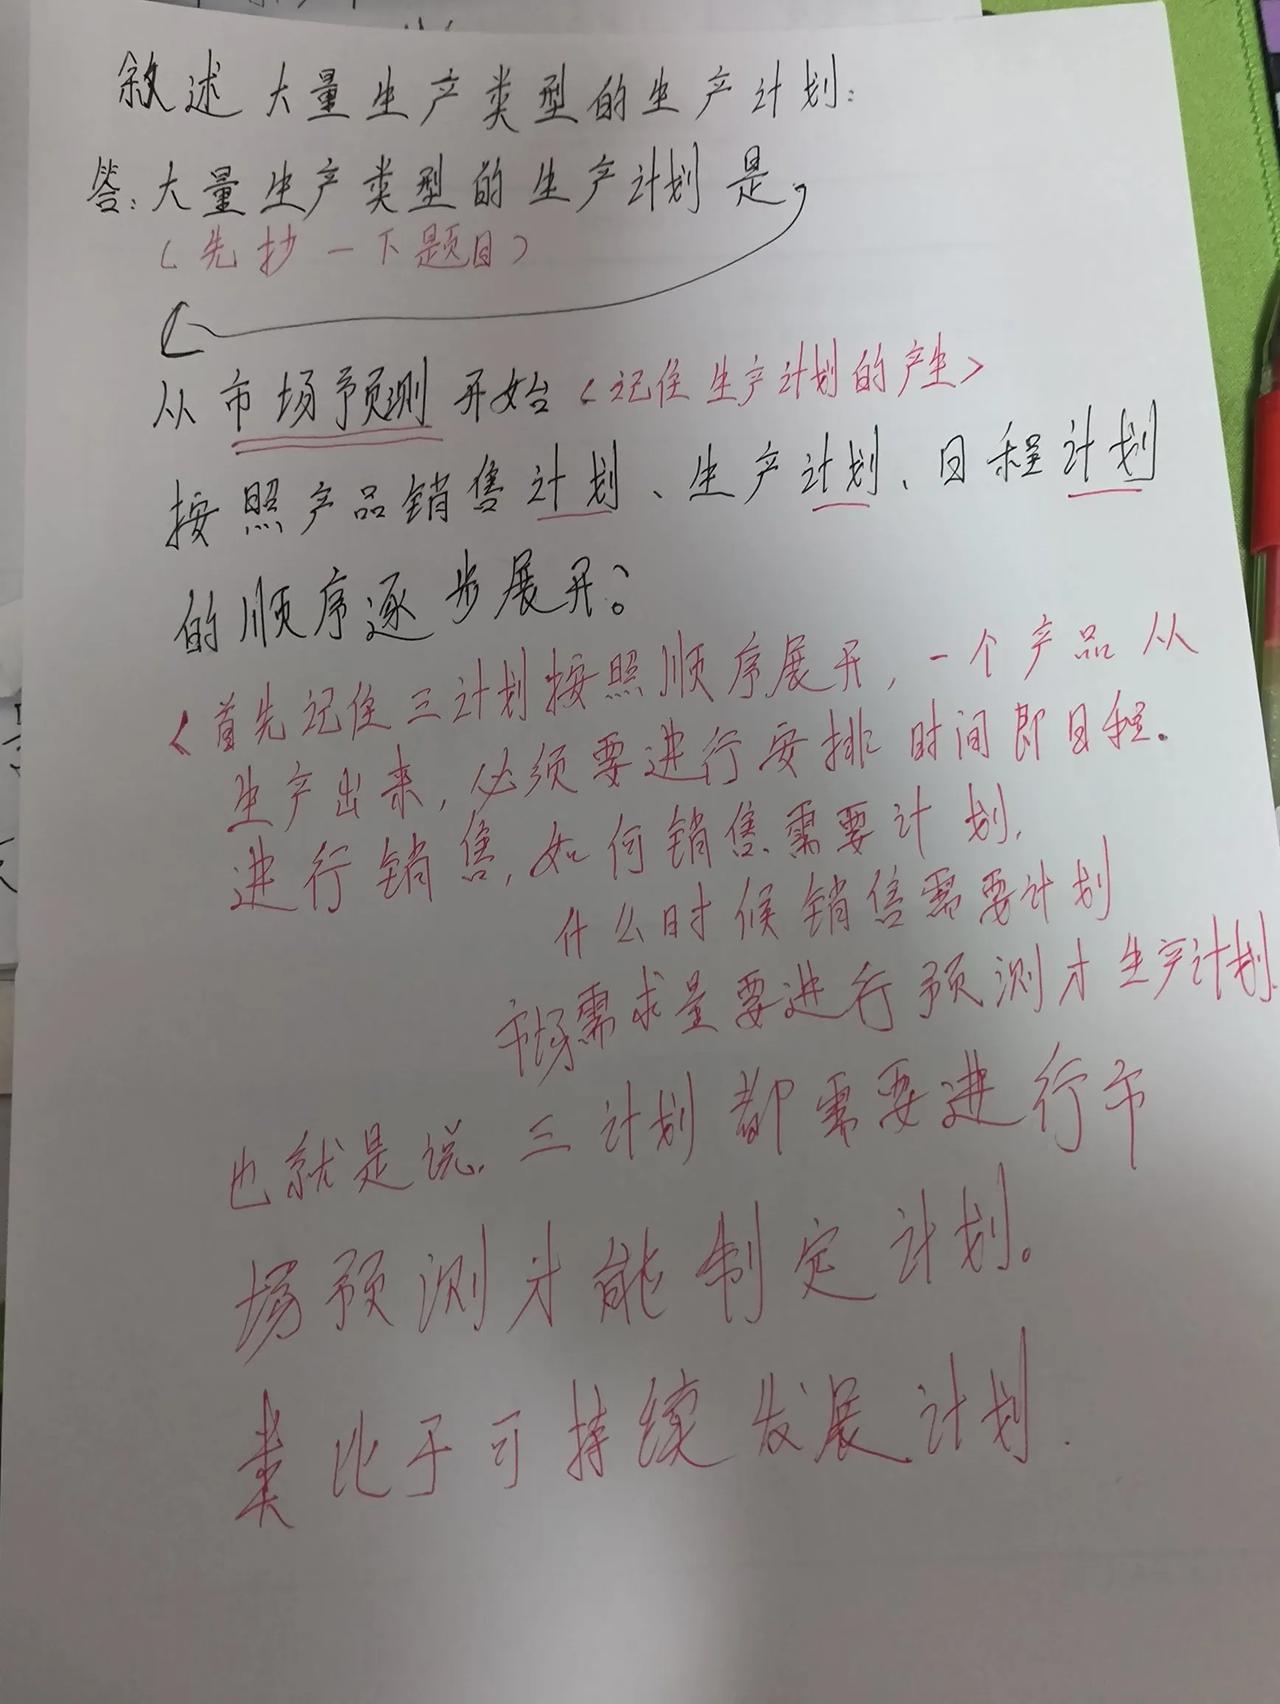 叙述大量生产类型的生产计划:
答:大量生产类型的生产计划是,
(先抄一下题目)
从市场预测开始<记住生产计划的产生>
按照产品销售计划、生产计划、日程计划
的顺序逐步展开。
<首先记住三计划按照顺序展开,一个产品从
生产出来,必须要进行安排时间即日程.
进行销售,如何销售需要计划,
什么时候销售需要计划
市场需求量要进行预测才生产计划.
也就是说.三计划都需要进行市
场预测才能制定计划。
类比于可持续发展计划.